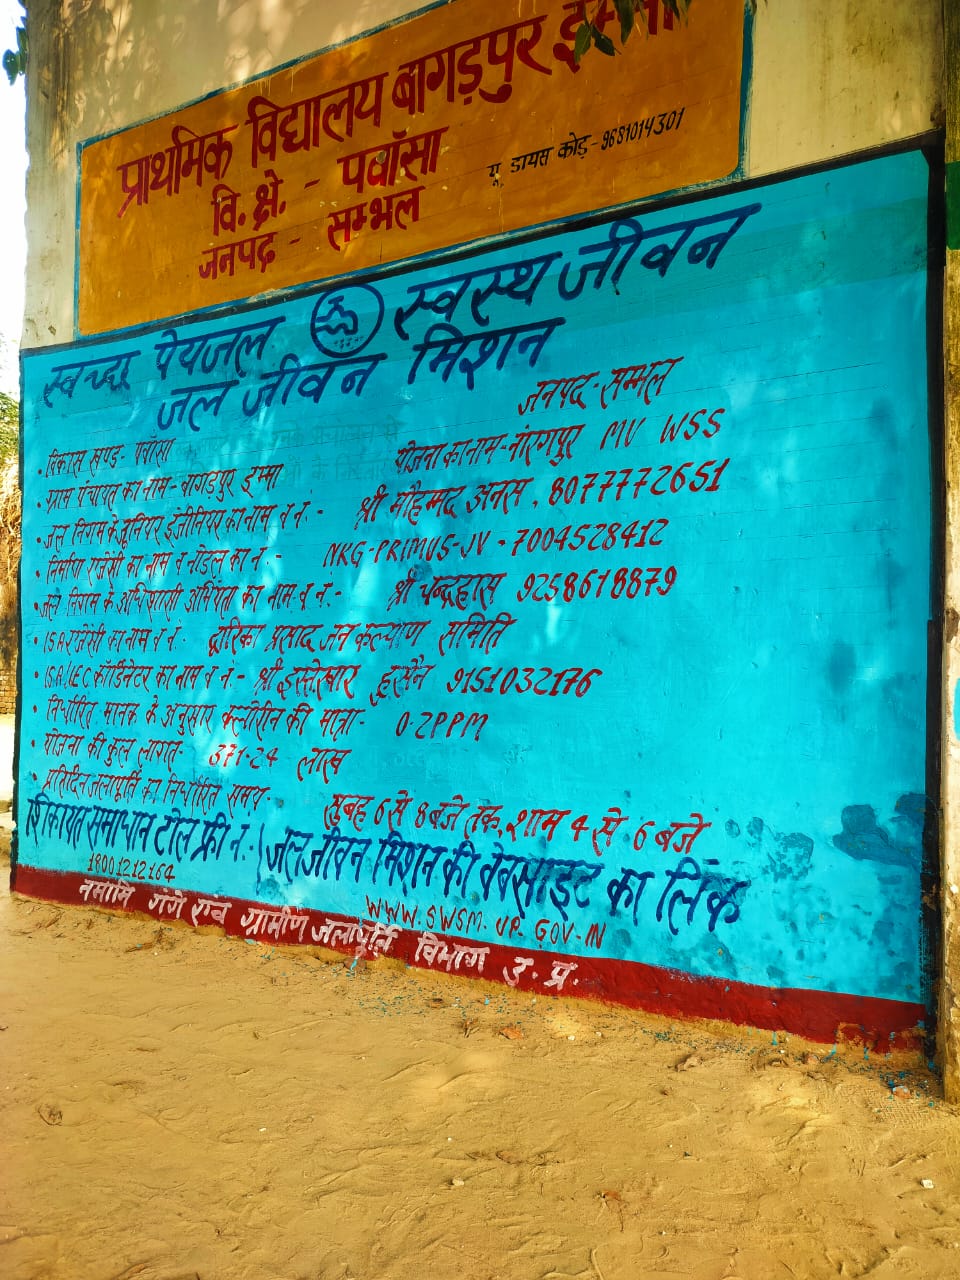 प्राथमिक विद्यालय बागड़पुर इम्मा
वि. क्षे. - पवाँसा
यू. डायस कोड़ - 9681014301
जनपद - सम्भल
स्वच्छ पेयजल स्वस्थ जीवन
जल जीवन मिशन
जनपद - सम्भल
• विकास खण्ड - पवाँसा
योजना का नाम - नारंगपुर MV WSS
• ग्राम पंचायत का नाम - बागड़पुर इम्मा
• जल निगम के जूनियर इंजीनियर का नाम व नं. - श्री मौहम्मद अनस . 8077772651
• निर्माण एजेंसी का नाम व नोडल का नं. - NKG-PRIMUS-JV - 7004528412
• जल निगम के अधिशासी अभियंता का नाम व नं. - श्री चन्द्रहास 9258618879
• ISA एजेंसी का नाम व नं. द्वारिका प्रसाद जन कल्याण समिति
• ISA/IEC कॉर्डिनेटर का नाम व नं. - श्री इस्तेखार हुसैन 9151032176
• निर्धारित मानक के अनुसार क्लोरीन की मात्रा - 0.2PPM
• योजना की कुल लागत - 371.24 लाख
• प्रतिदिन जलापूर्ति का निर्धारित समय - सुबह 6 से 8 बजे तक, शाम 4 से 6 बजे
शिकायत समाधान टोल फ्री नं. - जल जीवन मिशन की वेबसाइट का लिंक
18001212164
WWW.SWSM.UP.GOV.IN
नमामि गंगे एवं ग्रामीण जलापूर्ति विभाग उ. प्र.